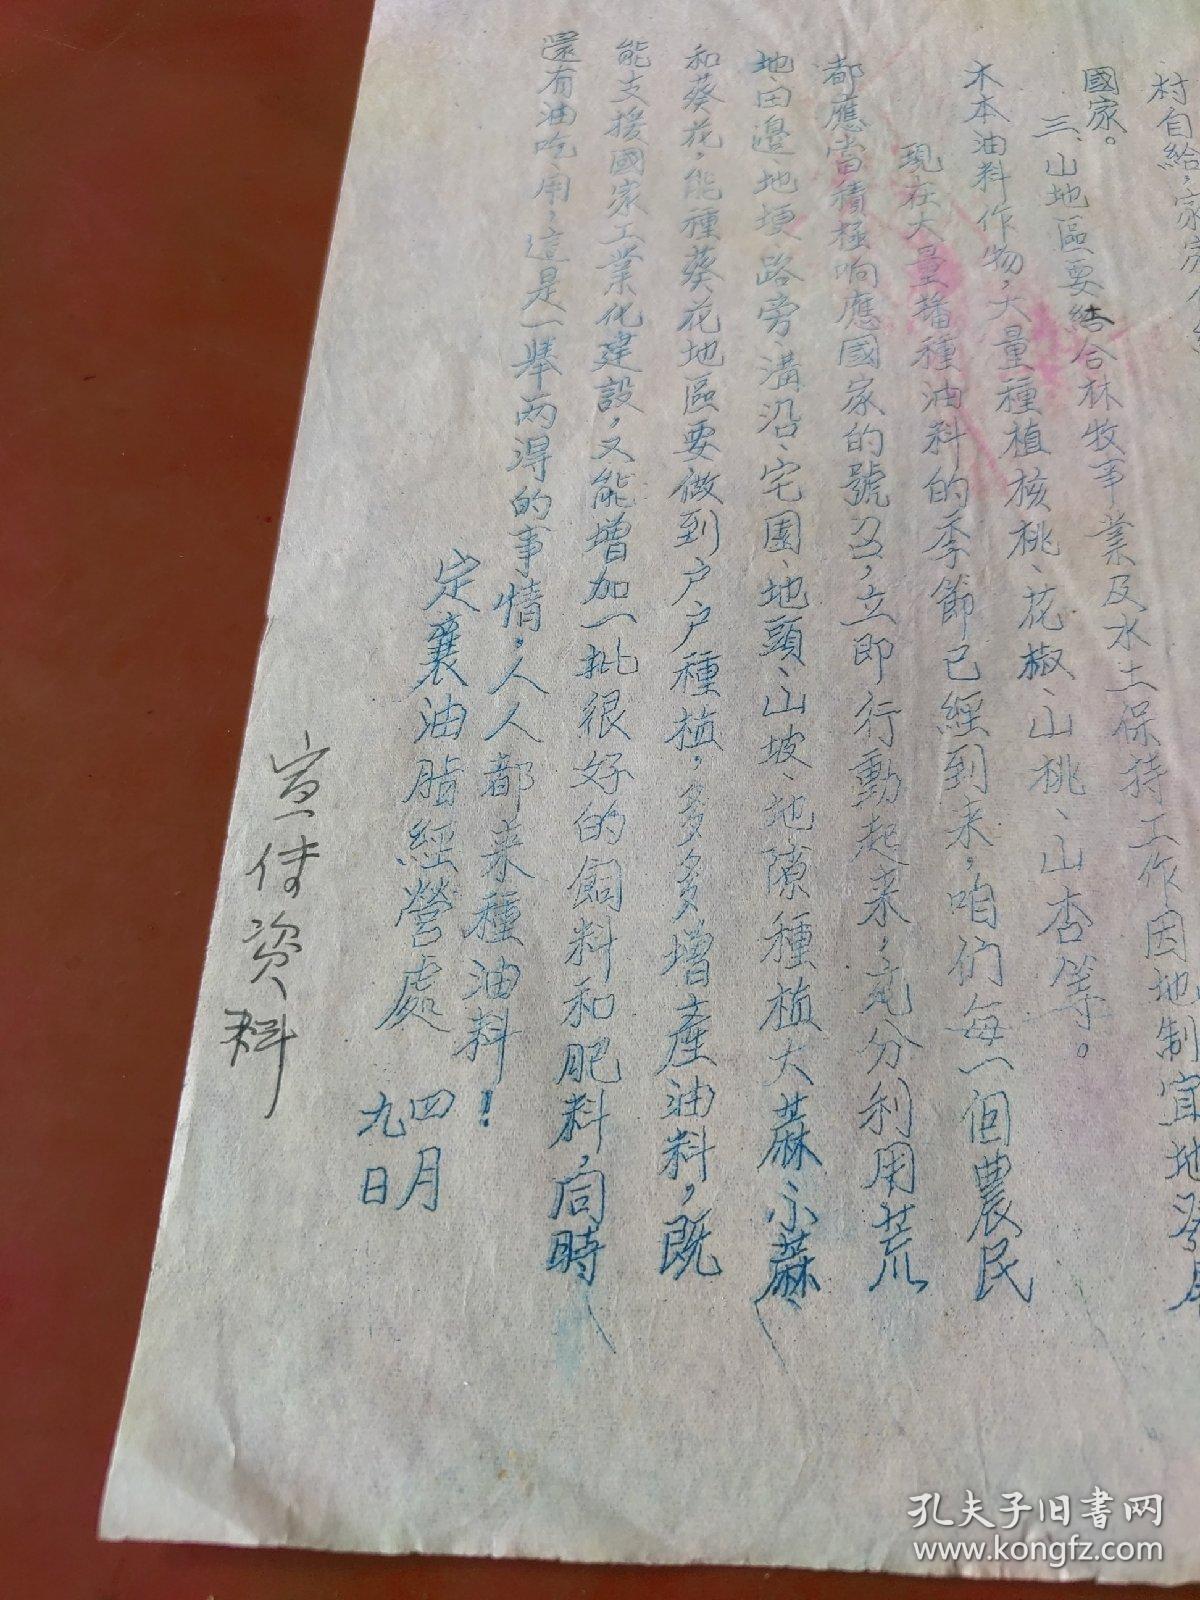 村自給，家家
國家。
三、山地區要結合林牧事業及水土保持工作因地制宜地發展
木本油料作物，大量種植核桃、花椒、山桃、山杏等。
現在大量播種油料的季節已經到来，咱们每一個農民
都應当積極响應國家的號召，立即行動起来，充分利用荒
地、田邊、地埂、路旁、溝沿、宅園、地頭、山坡、地隙種植大蔴、小蔴
和葵花，能種葵花地區要做到户户種植，多多增產油料，既
能支援國家工業化建設，又能增加一批很好的飼料和肥料，同時
還有油吃、用，這是一舉两得的事情，人人都来種油料！
定襄油脂經營處
四月
九日
宣传资料
孔夫子旧書网
www.kongfz.com